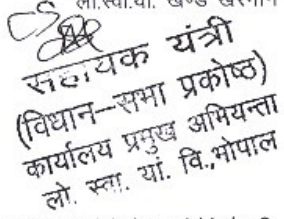 लो.स्वा.यां. खण्ड खरगोन
सहायक यंत्री
(विधान–सभा प्रकोष्ठ)
कार्यालय प्रमुख अभियन्ता
लो. स्वा. यां. वि.,भोपाल